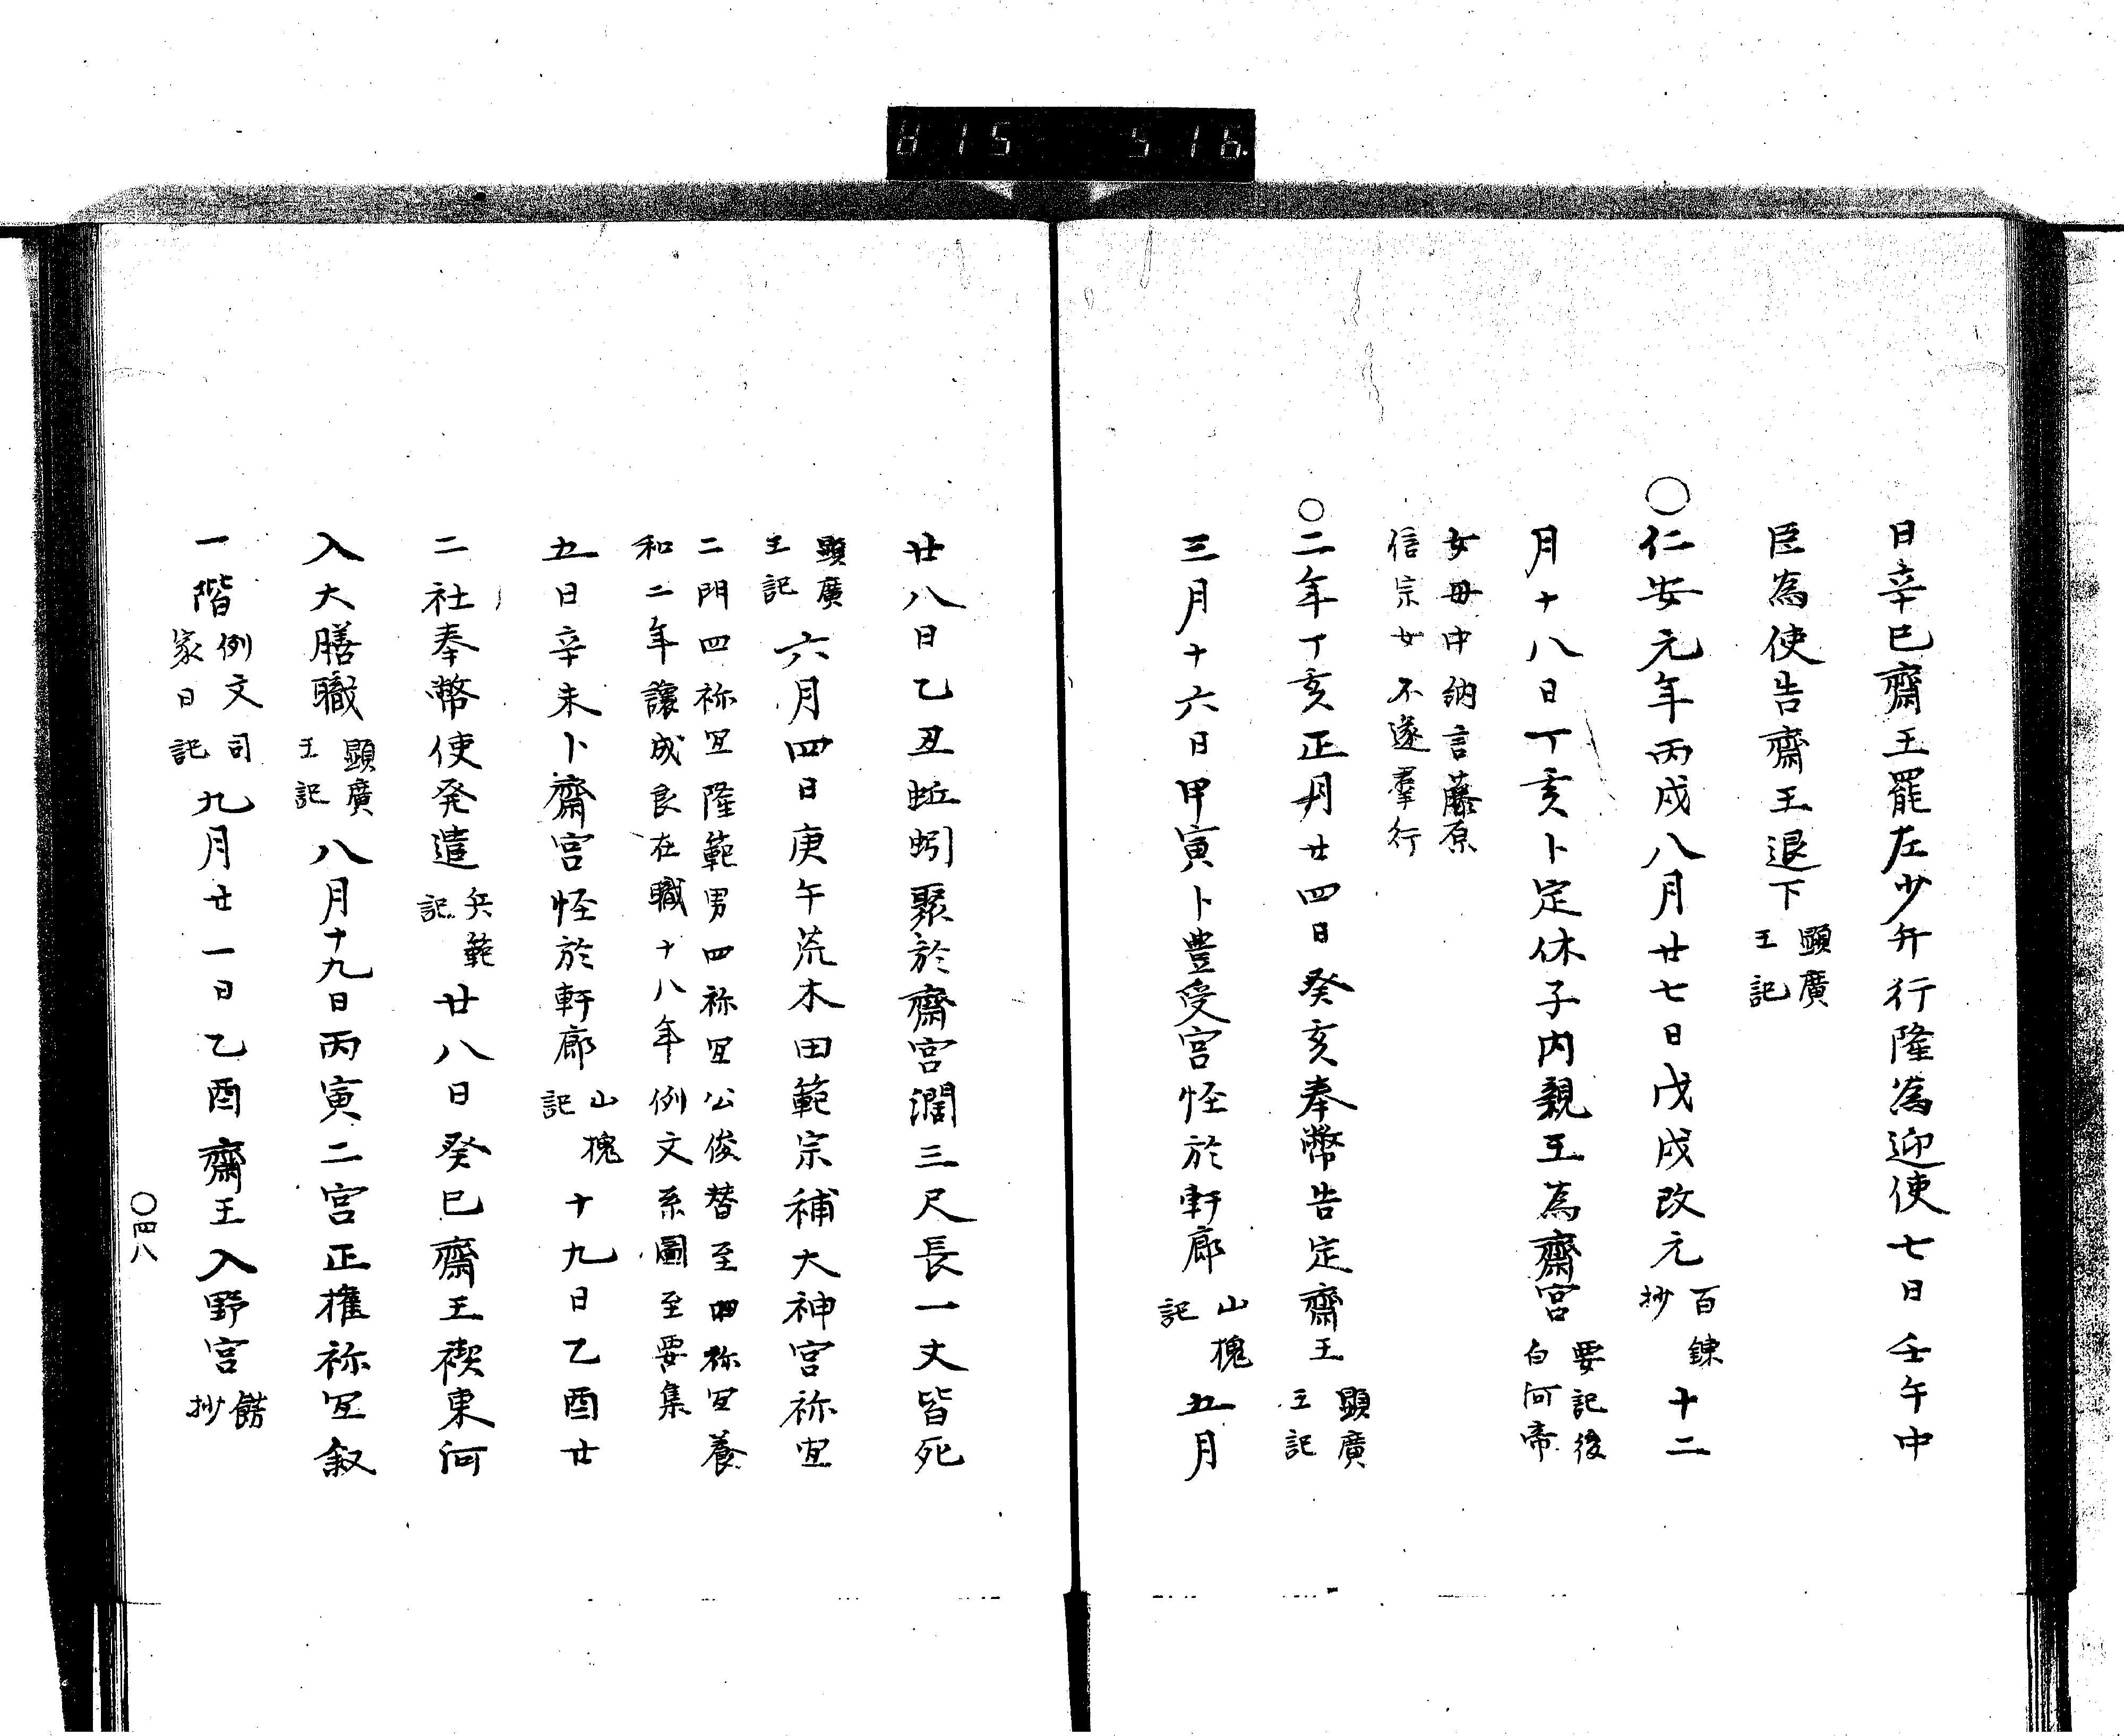 815 516.
日辛巳齋王罷左少弁行隆為迎使七日壬午中
臣為使告齋王退下顯廣王記
〇仁安元年丙戌八月廿七日戊戌改元百錬抄十二
月十八日丁亥卜定休子内親王為齋宮要記後白河帝
女母中納言藤原
信宗女不遂羣行
〇二年丁亥正月廿四日癸亥奉幣告定齋王顯廣王記
三月十六日甲寅卜豊受宮怪於軒廊山槐記五月
廿八日乙丑蚯蚓聚於齋宮濶三尺長一丈皆死
顯廣王記六月四日庚午荒木田範宗補大神宮祢宜
二門四祢宜隆範男四祢宜公俊替至四祢宜養
和二年讓成良在職十八年例文系圖至要集
五日辛未卜齋宮怪於軒廊山槐記十九日乙酉廿
二社奉幣使発遣兵範記廿八日癸巳齋王禊東河
入大膳職顯廣王記八月十九日丙寅二宮正権祢宜叙
一階例文司家日記九月廿一日乙酉齋王入野宮餝抄
〇四八